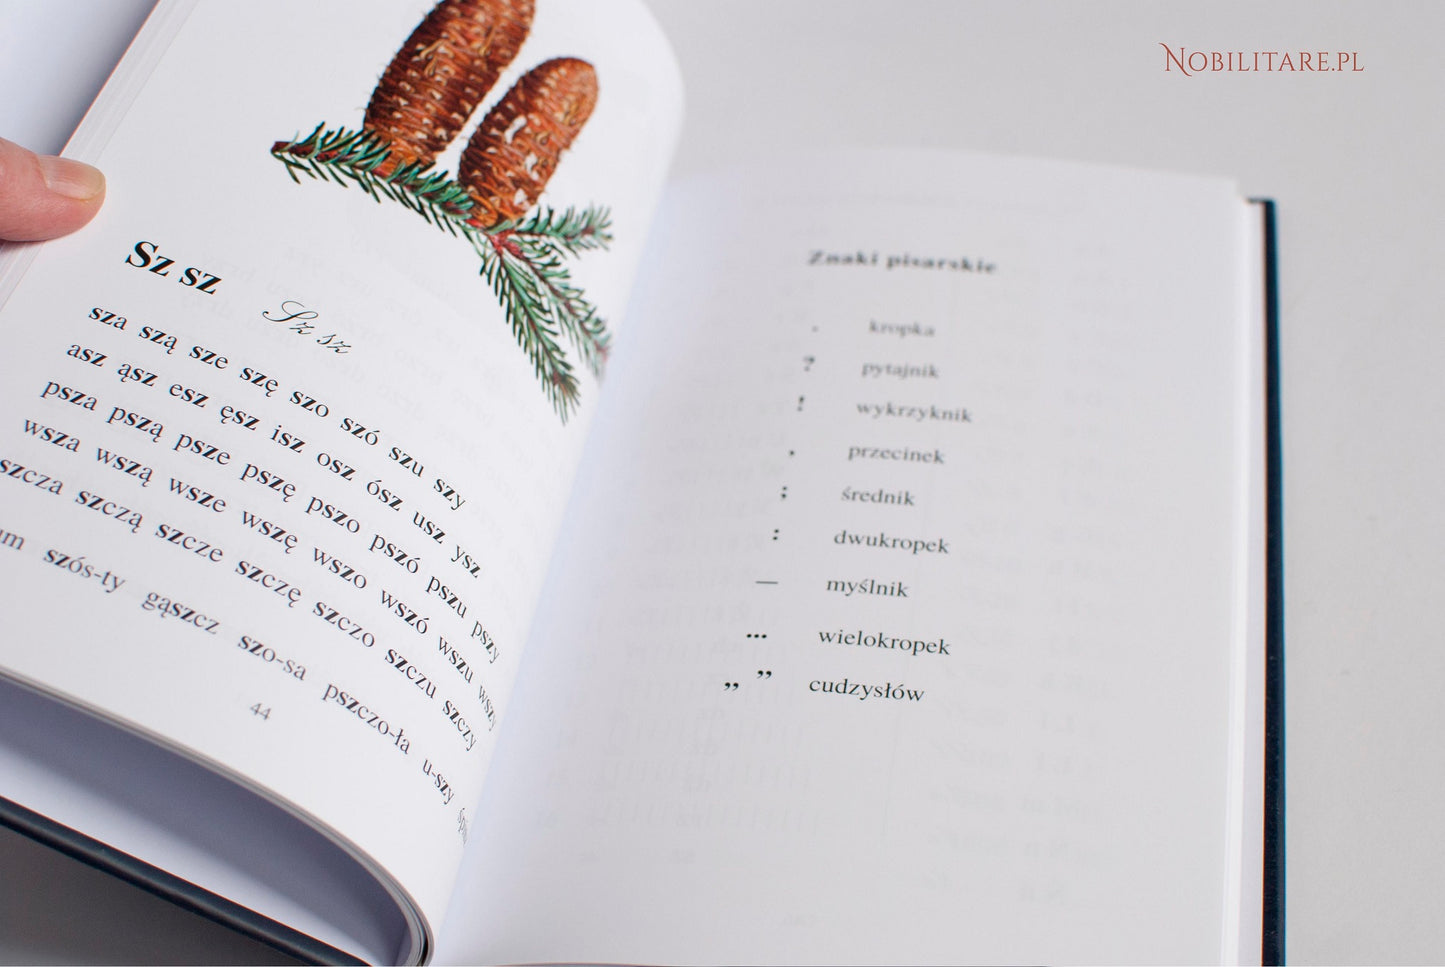 NOBILITARE.PL
Sz sz Sz sz
sza szą sze szę szo szó szu szy
asz ąsz esz ęsz isz osz ósz usz ysz
psza pszą psze pszę pszo pszó pszu pszy
wsza wszą wsze wszę wszo wszó wszu wszy
szcza szczą szcze szczę szczo szczu szczy
szós-ty gąszcz szo-sa pszczo-ła u-szy
44
Znaki pisarskie
. kropka
? pytajnik
! wykrzyknik
, przecinek
; średnik
: dwukropek
— myślnik
... wielokropek
„ ” cudzysłów